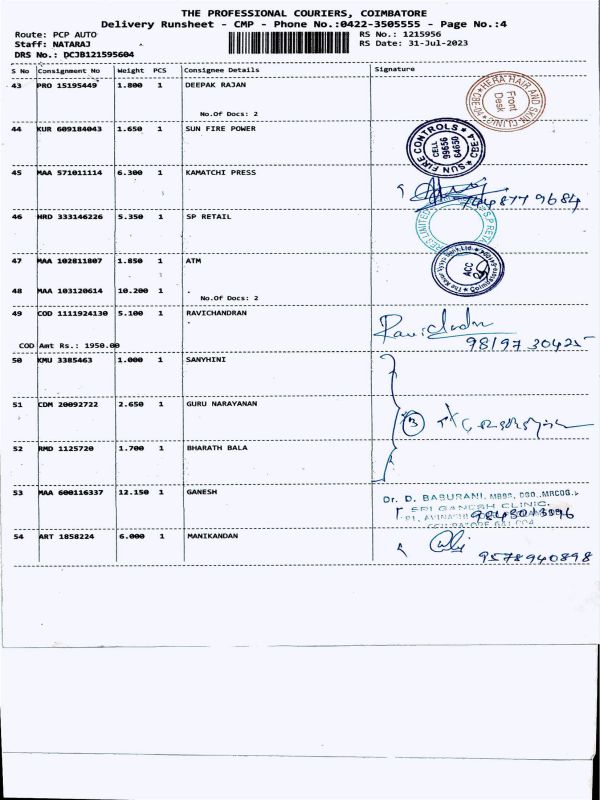 THE PROFESSIONAL COURIERS, COIMBATORE
Delivery Runsheet - CMP - Phone No.:0422-3505555 - Page No.:4
Route: PCP AUTO
Staff: NATARAJ
DRS No.: DCJB121595604
RS No.: 1215956
RS Date: 31-Jul-2023
S No Consignment No Weight PCS Consignee Details Signature
43 PRO 15195449 1.800 1 DEEPAK RAJAN
No.Of Docs: 2
HERA HAIR AND SKIN CLINIC
Front
Desk
44 KUR 609184043 1.650 1 SUN FIRE POWER
SUN FIRE CONTROLS CBE-4
CELL
99656
64650
45 MAA 571011114 6.300 1 KAMATCHI PRESS
46 HRD 333146226 5.350 1 SP RETAIL
47 MAA 102811807 1.850 1 ATM
ACC
48 MAA 103120614 10.200 1 .
No.Of Docs: 2
49 COD 1111924130 5.100 1 RAVICHANDRAN
98197 30425
COD Amt Rs.: 1950.00
50 KMU 3385463 1.000 1 SANYHINI
51 CDM 20092722 2.650 1 GURU NARAYANAN
3
52 RMD 1125720 1.700 1 BHARATH BALA
53 MAA 600116337 12.150 1 GANESH
Dr. D. BABURANI, MBBS, DGO., MRCOG.,
SRI GANESH CLINIC,
54 ART 1858224 6.000 1 MANIKANDAN
9578940898